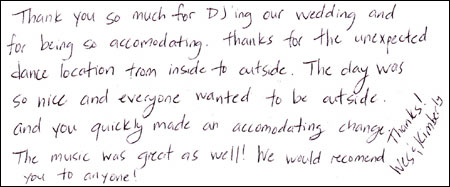 Thank you so much for DJ'ing our wedding and
for being so accomodating. Thanks for the unexpected
dance location from inside to outside. The day was
so nice and everyone wanted to be outside.
and you quickly made an accomodating change.
The music was great as well! We would recomend
you to anyone!
Thanks!
Wes & Kimberly